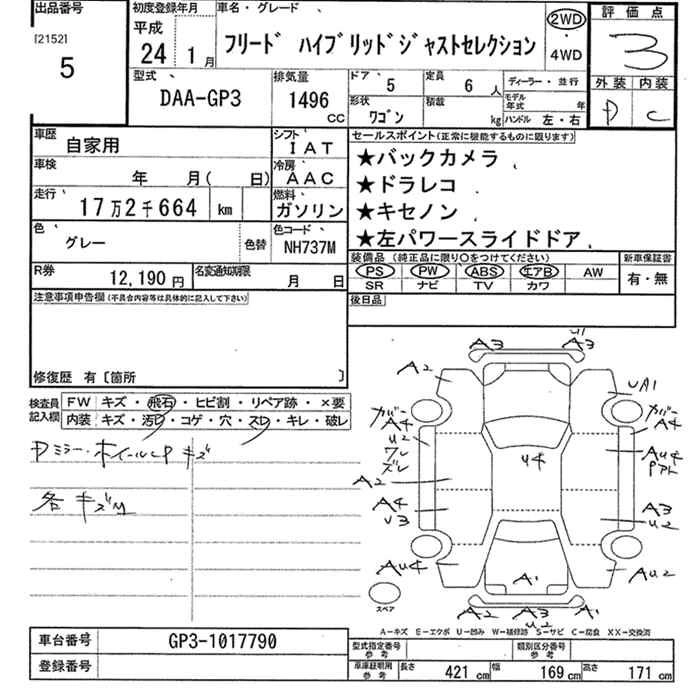 出品番号
[2152]
5
初度登録年月
平成
24 1月
車名・グレード
フリード ハイブリッドジャストセレクション
2WD
・
4WD
評価点
3
外装 内装
D C
型式
DAA-GP3
排気量
1496
CC
ドア 5
定員 6 人
ディーラー・並行
形状 ワゴン
積載 kg
モデル年式 年
ハンドル 左・右
車歴 自家用
シフト IAT
車検 年 月( 日)
冷房 AAC
走行 17万2千664 km
燃料 ガソリン
色 グレー
色替
色コード NH737M
R券 12,190円
名変通知期限 月 日
セールスポイント(正常に機能するものに限ります)
★バックカメラ
★ドラレコ
★キセノン
★左パワースライドドア
装備品 (純正品に限り○をつけてください)
PS PW ABS エアB AW
SR ナビ TV カワ
新車保証書
有・無
後日品
注意事項申告欄(不具合内容等は具体的に記入して下さい)
修復歴 有〔箇所 〕
検査員記入欄
FW キズ・飛石・ヒビ割・リペア跡・×要
内装 キズ・汚れ・コゲ・穴・スレ・キレ・破レ
Dミラー・ホイールCP キズ
各 キズM
U1
A3 A3
A2
UA1
カバー
A4
U2
ワレ
ズレ
カバー
A4
U4
AU4
Pアト
A2
A4
U3
A3
U2
AU4
AU2
A1
スペア
A2 A3 A1
U2
A-キズ E-エクボ U-凹み W-補修跡 S-サビ C-腐食 XX-交換済
車台番号 GP3-1017790
登録番号
型式指定番号参考
類別区分番号参考
車庫証明用参考
長さ 421 cm 幅 169 cm 高さ 171 cm